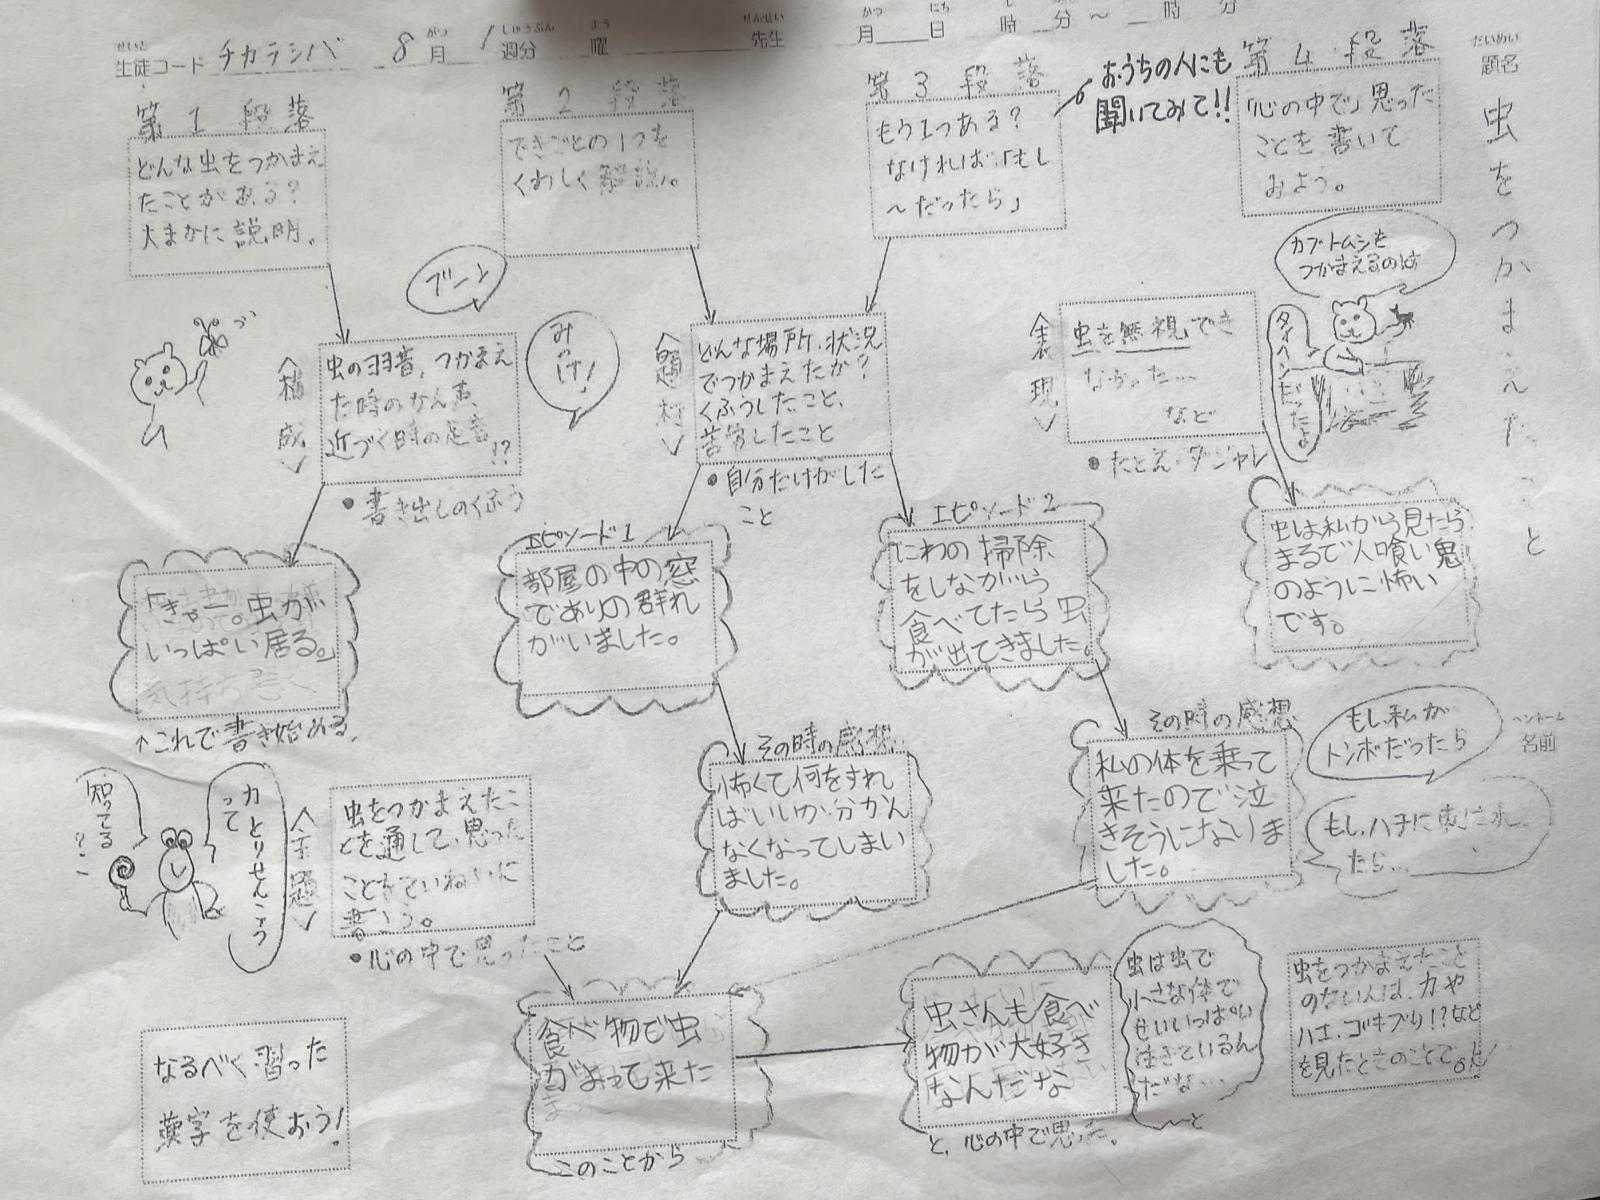 せいと
生徒コード チカラシバ 8 月 1 週分 曜 先生
がつ しゅうぶん よう せんせい
月 日 時 分 〜 時 分
だいめい
題名
虫をつかまえたこと
第1段落
どんな虫をつかまえ
たことがある?
大まかに説明。
第2段落
できごとの1つを
くわしく解説。
第3段落
もう1つある?
なければ「もし
〜だったら」
おうちの人にも
聞いてみて!!
第4段落
「心の中で」思った
ことを書いて
みよう。
ブーン
みっけ!
カブトムシを
つかまえるのは
タイヘンだったよ
<構成>
虫の羽音、つかまえ
た時のなん声、
近づく時の足音
!?
●書き出しのくふう
<題材>
どんな場所、状況
でつかまえたか?
くふうしたこと、
苦労したこと
●自分だけがした
こと
<表現>
虫を無視でき
なかった…
など
●たとえ・ダジャレ
「きゃー。虫が
いっぱい居る。」
↑これで書き始める。
エピソード1
部屋の中の窓
でありの群れ
がいました。
エピソード2
にわの掃除
をしながら
食べてたら虫
が出てきました。
虫は私から見たら
まるで人喰い鬼
のように怖い
です。
その時の感想
怖くて何をすれ
ばいいか分かん
なくなってしまい
ました。
その時の感想
私の体を乗って
来たので泣
きそうになりま
した。
もし、私が
トンボだったら
もし、ハチに
たら…
ペンネーム
名前
知ってる
?
カとりせんこう
って
<主題>
虫をつかまえたこ
とを通して、思った
ことをていねいに
書こう。
●心の中で思ったこと
なるべく習った
漢字を使おう!
食べ物で虫
がよって来た
このことから
虫さんも食べ
物が大好き
なんだな
と、心の中で思った。
虫は虫で
小さな体で
せいいっぱい
生きているん
だな…
〜と
虫をつかまえたこと
のない人は、カや
ハエ、ゴキブリ!?など
を見たときのことでOK!